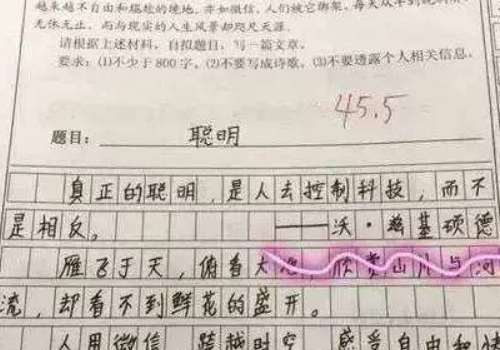 越来越不自由和尴尬的境地，亦如微信，人们被它绑架，每天从早到晚刷
无休无止，而与现实的人生风景却咫尺天涯。
请根据上述材料，自拟题目，写一篇文章。
要求：(1)不少于800字。(2)不要写成诗歌。(3)不要透露个人相关信息。
45.5
题目： 聪明
真正的聪明，是人去控制科技，而不
是相反。 ——沃·兹基硕德
雁飞于天，俯看大地，欣赏山川与河
流，却看不到鲜花的盛开。
人用微信，跨越时空，感受自由和